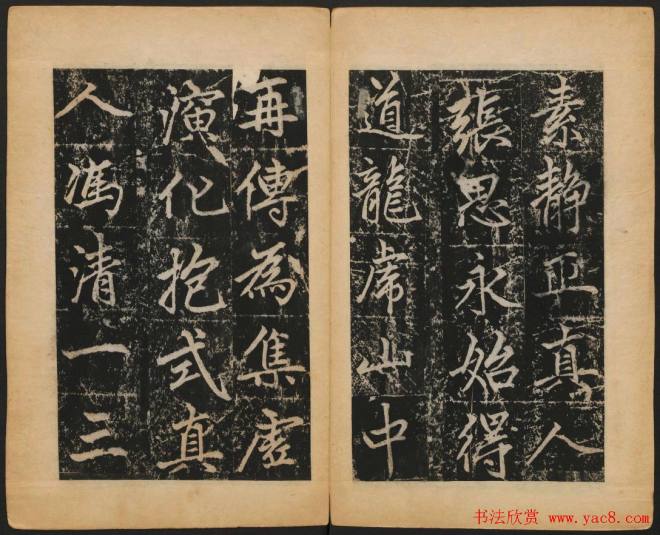 素靜正真人
張思永始得
道龍虎山中
再傳為集虛
演化抱式真
人馮清一三
书法欣赏 www.yac8.com